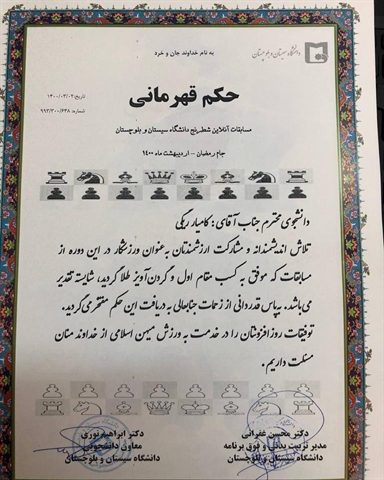 به نام خداوند جان و خرد
دانشگاه سیستان و بلوچستان
تاریخ: ۱۴۰۰/۰۴/۰۲
شماره: ۹۹۲/۳۰۰/۶۴۸
حکم قهرمانی
مسابقات آنلاین شطرنج دانشگاه سیستان و بلوچستان
جام رمضان - اردیبهشت ماه ۱۴۰۰
دانشجوی محترم جناب آقای: کامیار ریگی
تلاش اندیشمندانه و مشارکت ارزشمندتان به‌عنوان ورزشکار در این دوره از
مسابقات که موفق به کسب مقام اول و گردن‌آویز طلا گردید، شایسته تقدیر
می‌باشد. به‌پاس قدردانی از زحمات جنابعالی به دریافت این حکم مفتخر می‌گردید.
توفیقات روزافزونتان را در خدمت به ورزش میهن اسلامی از خداوند منان
مسئلت داریم.
دکتر محسن غفرانی
مدیر تربیت بدنی و فوق برنامه
دانشگاه سیستان و بلوچستان
دکتر ابراهیم نوری
معاون دانشجویی
دانشگاه سیستان و بلوچستان